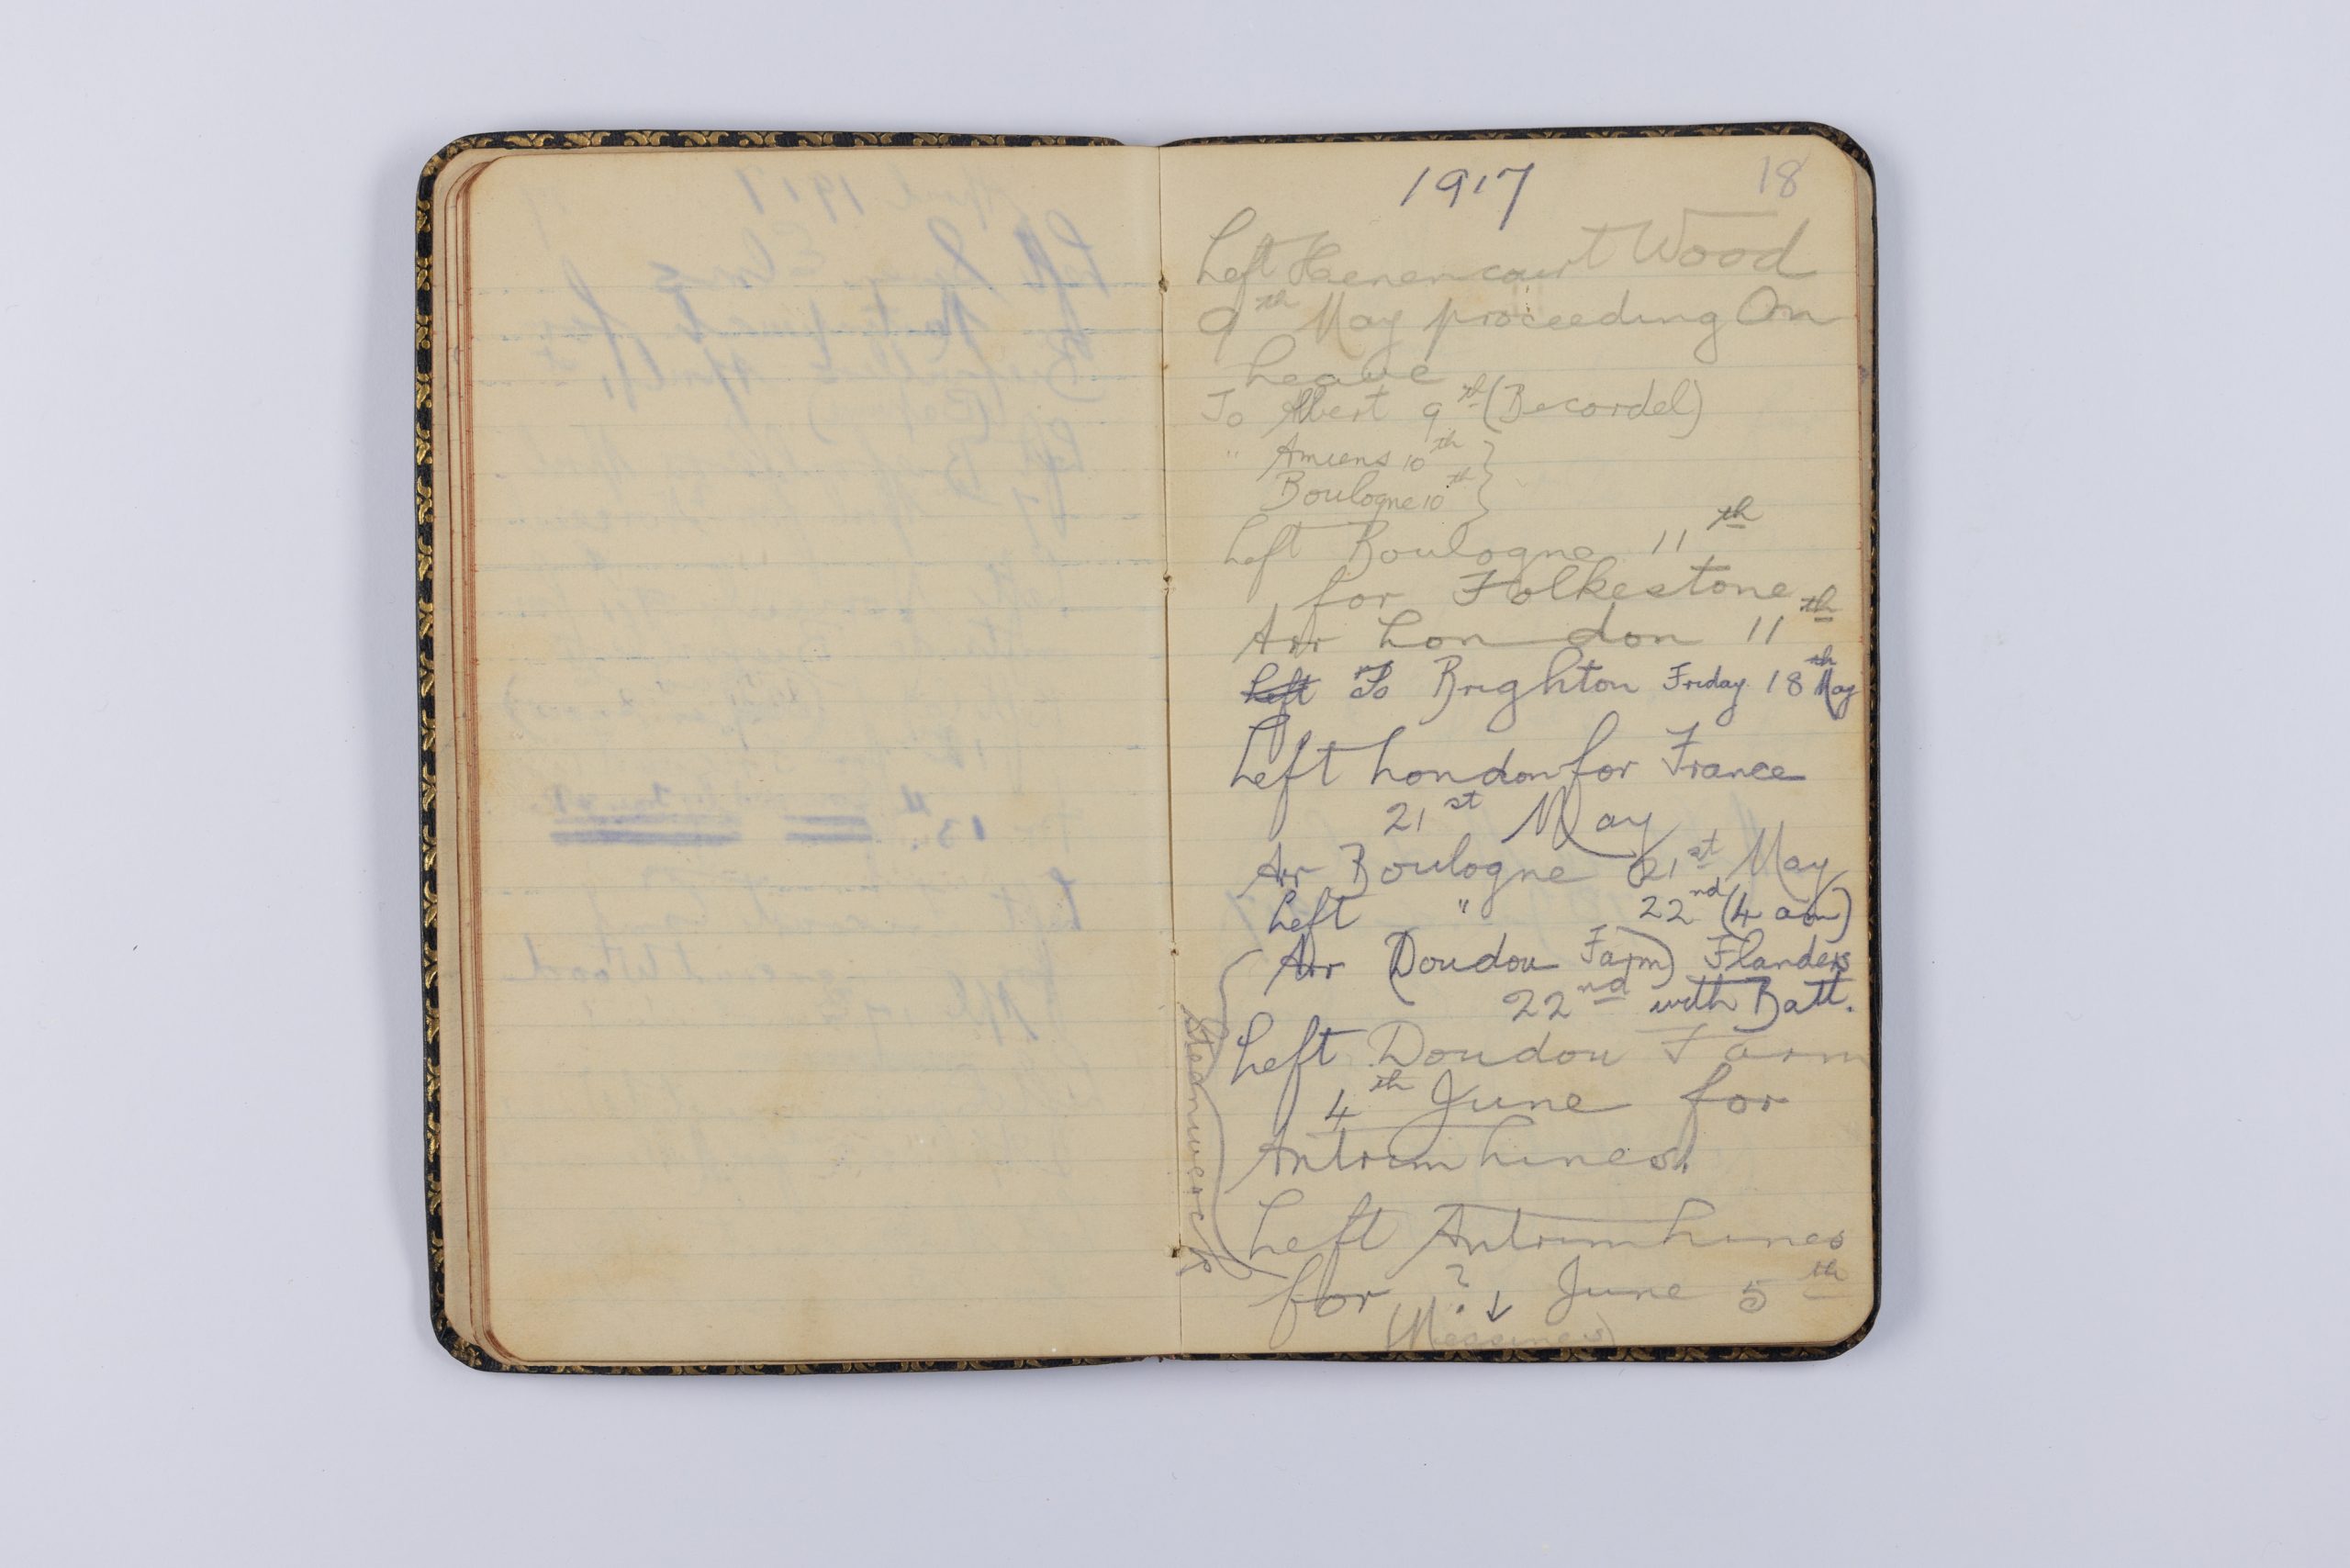 1917 18
Left Henencourt Wood
9th May proceeding On
Leave
To Albert 9th (Becordel)
" Amiens 10th }
Boulogne 10th }
Left Boulogne 11th
for Folkestone
Arr London 11th
Left To Brighton Friday 18th May
Left London for France
21st May
Arr Boulogne 21st May
Left " 22nd (4 am)
Arr (Doudou Farm) Flanders
22nd with Batt.
Left Doudou Farm
4th June for
Antrim Lines.
Left Antrim Lines
for ? ↓ June 5th
(Messines)
Steenwerck